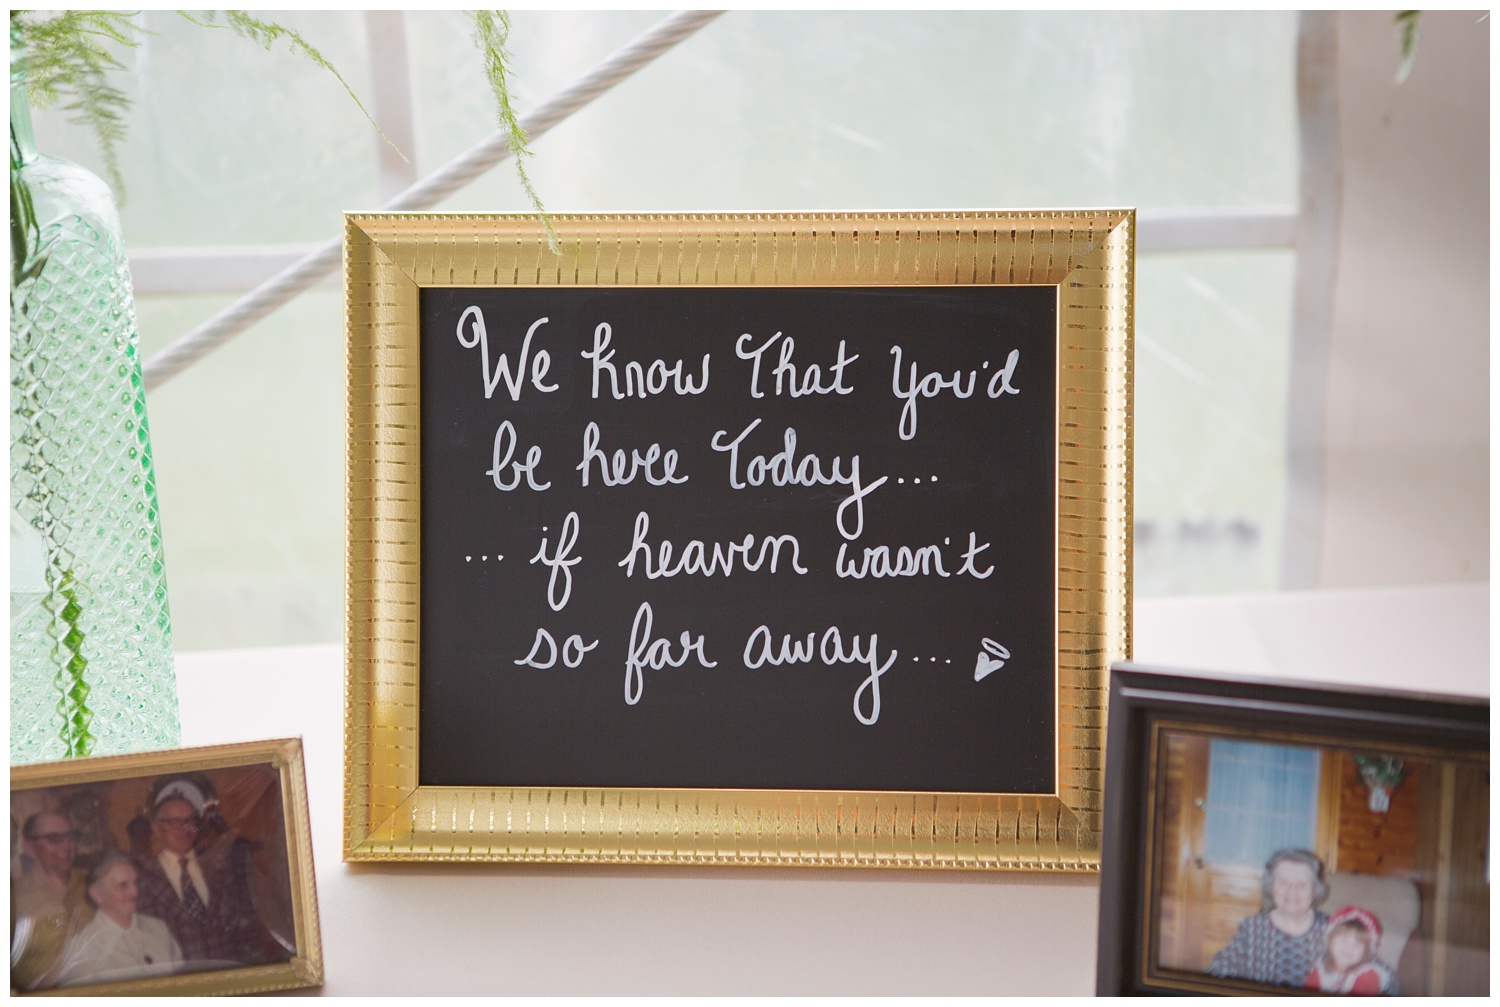 We know That you'd
be here Today...
... if heaven wasn't
so far away...